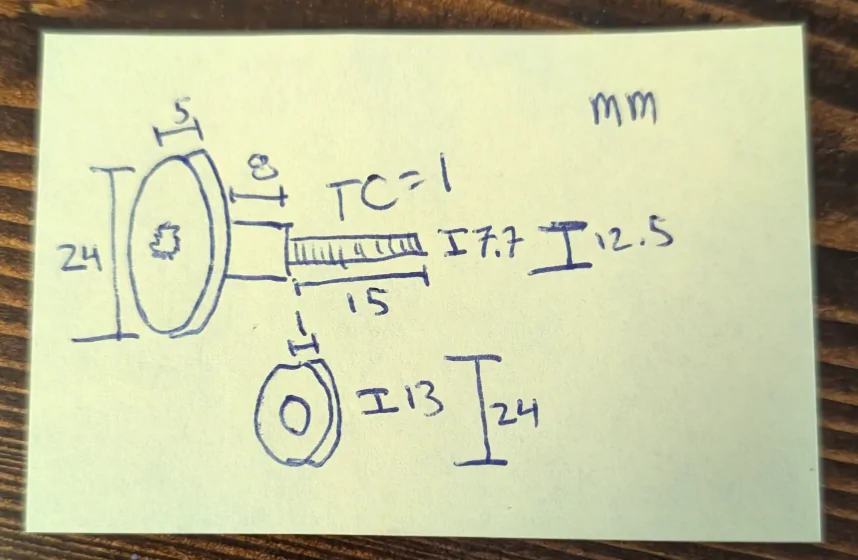 mm
5
8
TC=1
24
7.7
12.5
15
1
13
24